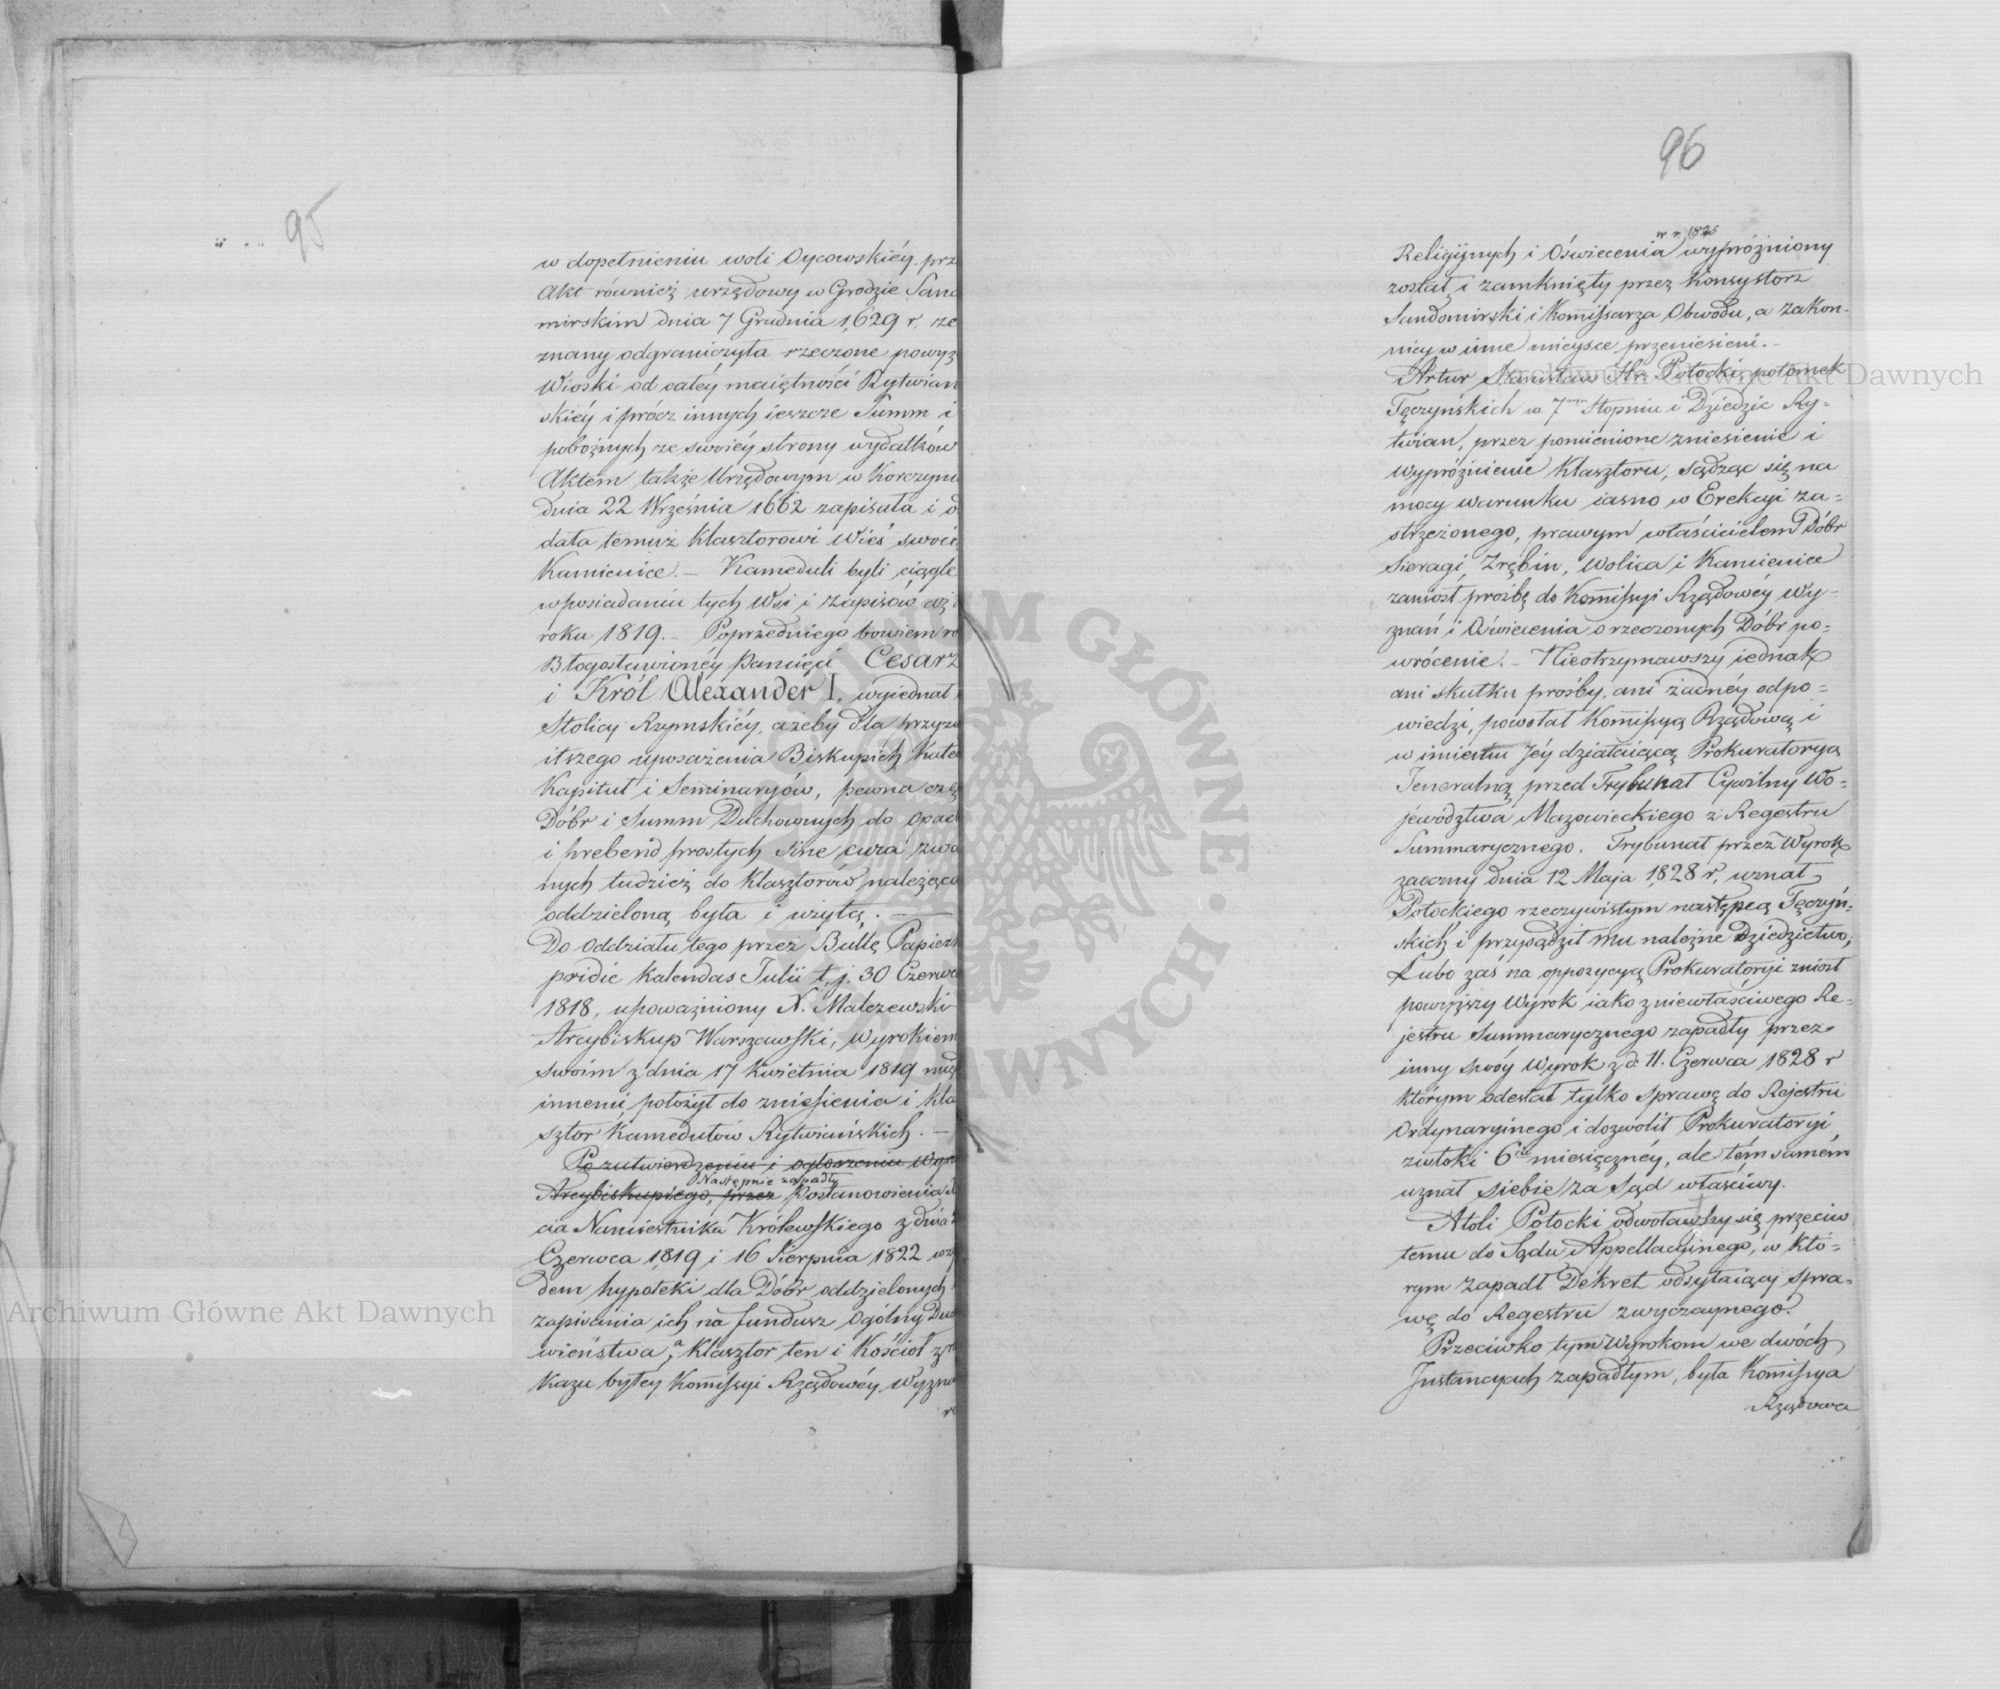 95
w dopełnieniu woli Oycowskiéy. prz
Akt również urzędowy w Grodzie Sand
mirskim dnia 7 Grudnia 1,629 r. ze
znany odgraniczyła rzeczone powyż
Wioski od całéy maiętności Rytwian
skiéy i prócz innych ieszcze Summ i
pobożnych ze swoiéy strony wydatków
Aktem także Urzędowym w Korczynu
dnia 22 Września 1662 zapisała i o
dała temuż Klasztorowi Wieś swoię
Kamienice. — Kameduli byli ciągle
w posiadaniu tych Wsi i zapisów aż
roku 1819. — Poprzedniego bowiem ro
Błogosławionéy Pamięci Cesarz
i Król Alexander I. wyiednał
Stolicy Rzymskiéy, ażeby dla przyzw
itszego uposażenia Biskupich Kate
Kapituł i Seminaryów, pewna czę
Dóbr i Summ Duchownych do opac
i prebend prostych sine cura zwa
nych tudzież do Klasztorów należąca
oddzieloną była i użytą. —
Do oddziału tego przez Bullę Papiezk
pridie Kalendas Julii t. j. 30 Czerwc
1818, upoważniony X. Malczewski
Arcybiskup Warszawski, Wyrokiem
swoim z dnia 17 Kwietnia 1819 międ
innemi położył do zniesienia i kla
sztor Kamedułów Rytwiańskich. —
Po zatwierdzeniu i ogłoszeniu Wyro
Następnie zapadły
Arcybiskupiego, przez Postanowienia X
cia Namiestnika Królewskiego z dnia
Czerwca 1819 i 16 Sierpnia 1822 wzg
dem hypoteki dla Dóbr oddzielonych
zapisania ich na fundusz ogólny Duc
wieństwa, a Klasztor ten i Kościoł z
kazu byłey Kommissyi Rządowéy Wyzna
96
w r. 1825
Religijnych i Oświecenia wypróżniony
został i zamknięty przez Konsystorz
Sandomirski i Kommissarza Obwodu, a zakon-
nicy w inne mieysce przeniesieni. —
Artur Stanisław Hr. Potocki, potomek
Tęczyńskich w 7mym Stopniu i Dziedzic Ry-
twian, przez pomienione zniesienie i
wypróżnienie Klasztoru, sądząc się na
mocy warunku iasno w Erekcyi za-
strzeżonego, prawym właścicielem Dóbr
Sieragi, Zrębin, Wolica i Kamienice
zaniosł prośbę do Kommissyi Rządowéy Wy-
znań i Oświecenia o rzeczonych Dóbr po-
wrócenie. — Nieotrzymawszy iednak
ani skutku prośby, ani żadnéy odpo-
wiedzi, powołał Kommissyą Rządową i
w imieniu Jéy działaiącą Prokuratoryą
Jeneralną przed Trybunał Cywilny Wo-
jewództwa Mazowieckiego z Regestru
Summarycznego. Trybunał przez Wyrok
zaoczny dnia 12 Maja 1828 r. uznał
Potockiego rzeczywistym następcą Tęczyń-
skich i przysądził mu należne Dziedzictwo,
Lubo zaś na oppozycyą Prokuratoryi zniosł
powyższy Wyrok iako z niewłaściwego Re-
jestru Summarycznego zapadły przez
inny swóy Wyrok z d. 11. Czerwca 1828 r
którym odesłał tylko sprawę do Rejestru
Ordynaryinego i dozwolił Prokuratoryi
zwłoki 6cio miesięcznéy, ale tém samém
uznał siebie za Sąd właściwy.
Atoli Potocki odwoławszy się przeciw
temu do Sądu Appellacyinego, w któ-
rym zapadł Dekret odsyłaiący spra-
wę do Regestru zwyczaynego.
Przeciwko tym Wyrokom we dwóch
Instancyach zapadłym, była Kommissya
Rządowa
Archiwum Główne Akt Dawnych
Archiwum Główne Akt Dawnych
ARCHIWUM GŁÓWNE AKT DAWNYCH